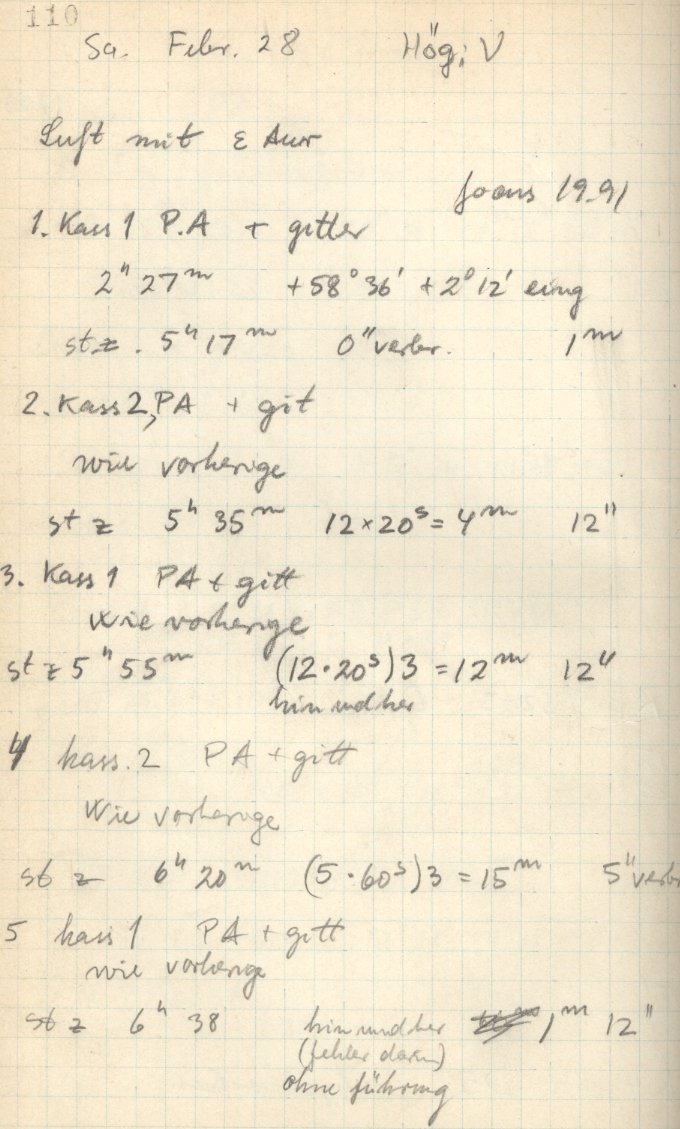 110
Sa. Febr. 28 Hög; V
Luft mit ε Aur
focus 19.91
1. Kass 1 P.A + gitter
2ʰ 27ᵐ +58° 36' + 2° 12' eing
st.z. 5ʰ 17ᵐ 0" verbr. 1ᵐ
2. Kass 2, PA + git
wie vorherige
st z 5ʰ 35ᵐ 12×20ˢ = 4ᵐ 12"
3. Kass 1 PA + gitt
Wie vorherige
st z 5ʰ 55ᵐ (12·20ˢ)3 = 12ᵐ 12"
hin und her
4 kass. 2 PA + gitt
Wie vorherige
st z 6ʰ 20ᵐ (5·60ˢ)3 = 15ᵐ 5" verbr
5 kass 1 PA + gitt
wie vorherige
st z 6ʰ 38 hin und her 1ᵐ 12"
(fehler darin)
ohne führung